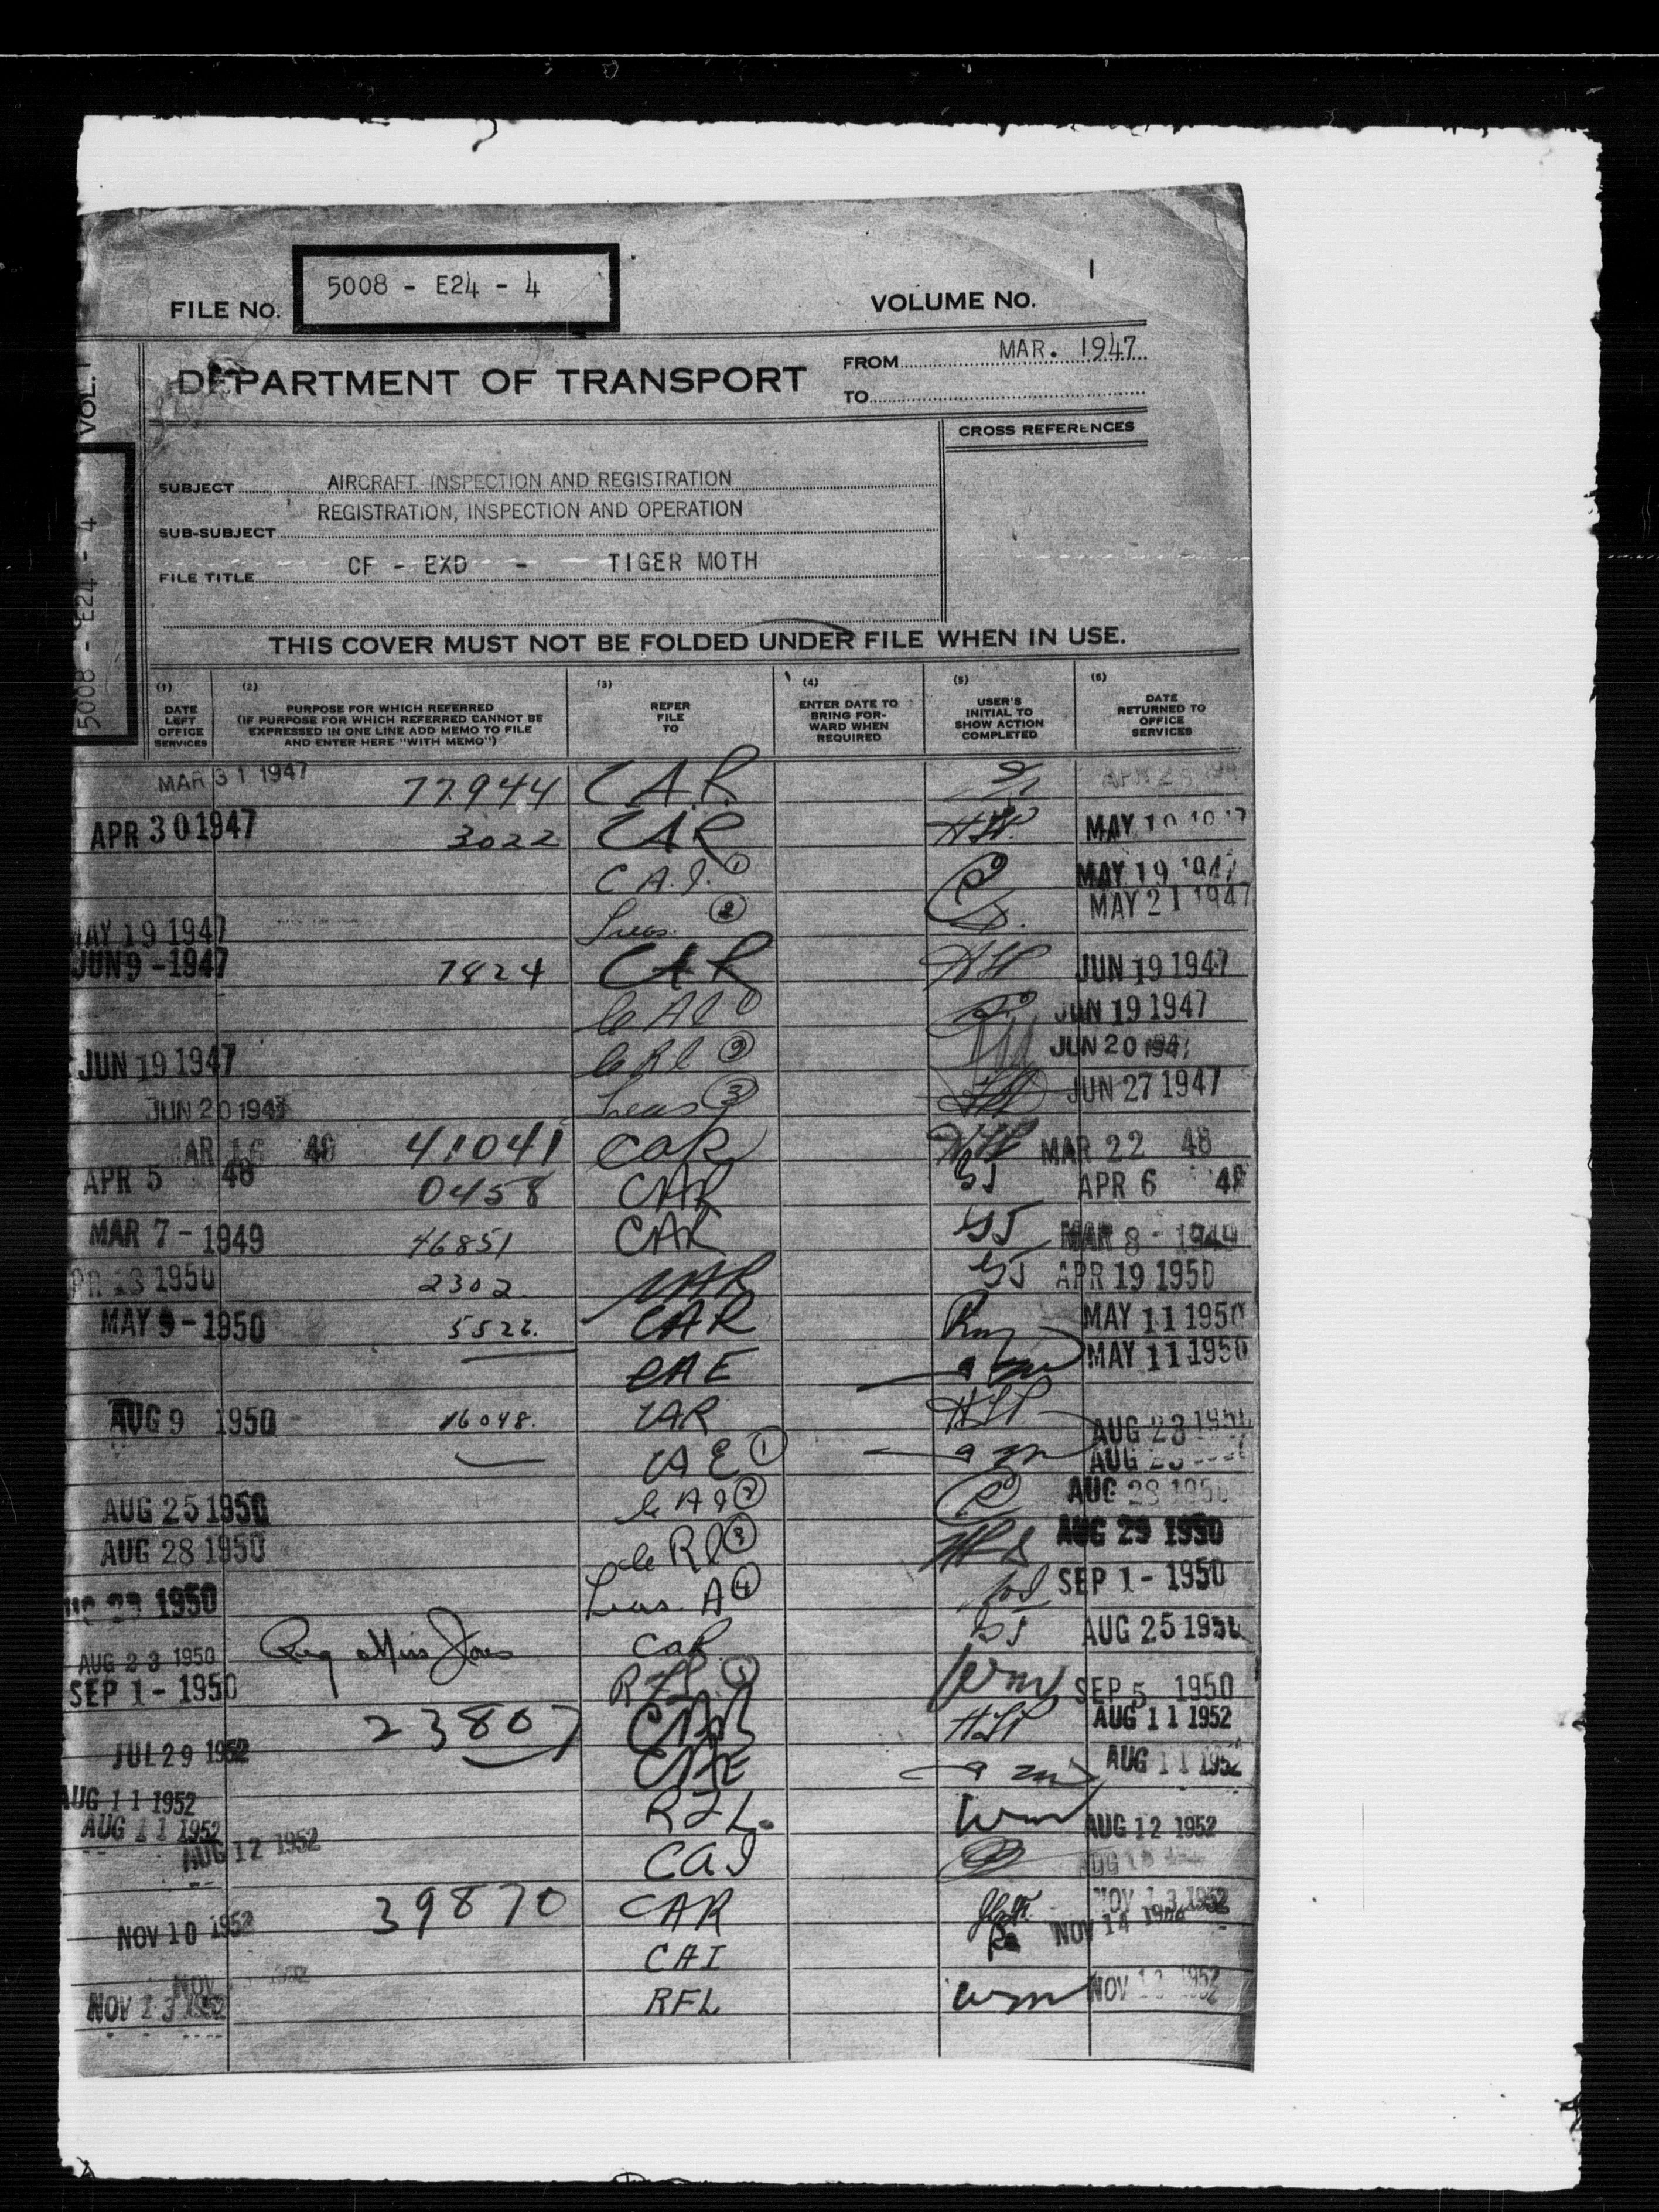 1
FILE NO. 5008 - E24 - 4 VOLUME NO.
DEPARTMENT OF TRANSPORT
FROM MAR. 1947
TO
CROSS REFERENCES
VOL. 1
5008 - E24 - 4
SUBJECT AIRCRAFT INSPECTION AND REGISTRATION
SUB-SUBJECT REGISTRATION, INSPECTION AND OPERATION
FILE TITLE CF - EXD - TIGER MOTH
THIS COVER MUST NOT BE FOLDED UNDER FILE WHEN IN USE.
(1) DATE LEFT OFFICE SERVICES
(2) PURPOSE FOR WHICH REFERRED (IF PURPOSE FOR WHICH REFERRED CANNOT BE EXPRESSED IN ONE LINE ADD MEMO TO FILE AND ENTER HERE "WITH MEMO")
(3) REFER FILE TO
(4) ENTER DATE TO BRING FOR-WARD WHEN REQUIRED
(5) USER'S INITIAL TO SHOW ACTION COMPLETED
(6) DATE RETURNED TO OFFICE SERVICES
MAR 31 1947 77944 C.A.R.
APR 30 1947 3022 CAR MAY
C.A.I. 1 MAY 19 1947
MAY 19 1947 2 MAY 21 1947
JUN 9 - 1947 7824 CAR JUN 19 1947
CAI 1 JUN 19 1947
JUN 19 1947 2 JUN 20 1947
JUN 20 1947 3 JUN 27 1947
MAR 16 48 41041 CAR MAR 22 48
APR 5 48 0458 CAR APR 6 48
MAR 7 - 1949 46851 CAR MAR 8 - 1949
1950 2302 CAR APR 19 1950
MAY 9 - 1950 5522. CAR MAY 11 1950
CAE MAY 11 1950
AUG 9 1950 16048. CAR AUG
CAE 1 AUG
AUG 25 1950 CAI 2 AUG 28 1950
AUG 28 1950 3 AUG 29 1950
29 1950 A 4 SEP 1 - 1950
AUG 23 1950 Miss CAR AUG 25 1950
SEP 1 - 1950 RFL 5 wm SEP 5 1950
JUL 29 1952 23807 CAR AUG 11 1952
AUG 11 1952 CAE AUG 11 1952
AUG 11 1952 RFL. wm AUG 12 1952
AUG 12 1952 CAI
NOV 10 1952 39870 CAR NOV 13 1952
NOV CAI NOV 14
NOV 13 1952 RFL wm NOV 1952